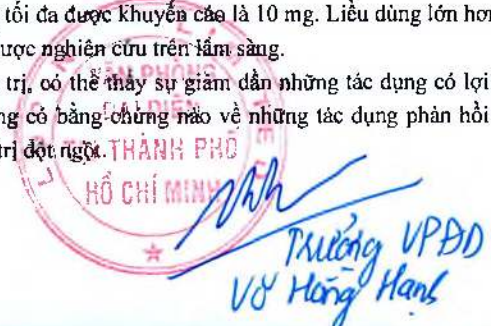 tối đa được khuyến cáo là 10 mg. Liều dùng lớn hơn
ược nghiên cứu trên lâm sàng.
trị, có thể thấy sự giảm dần những tác dụng có lợi
ng có bằng chứng nào về những tác dụng phản hồi
trị đột ngột.
VĂN PHÒNG
ĐẠI DIỆN
THÀNH PHỐ
HỒ CHÍ MINH
Trưởng VPĐD
Võ Hồng Hạnh